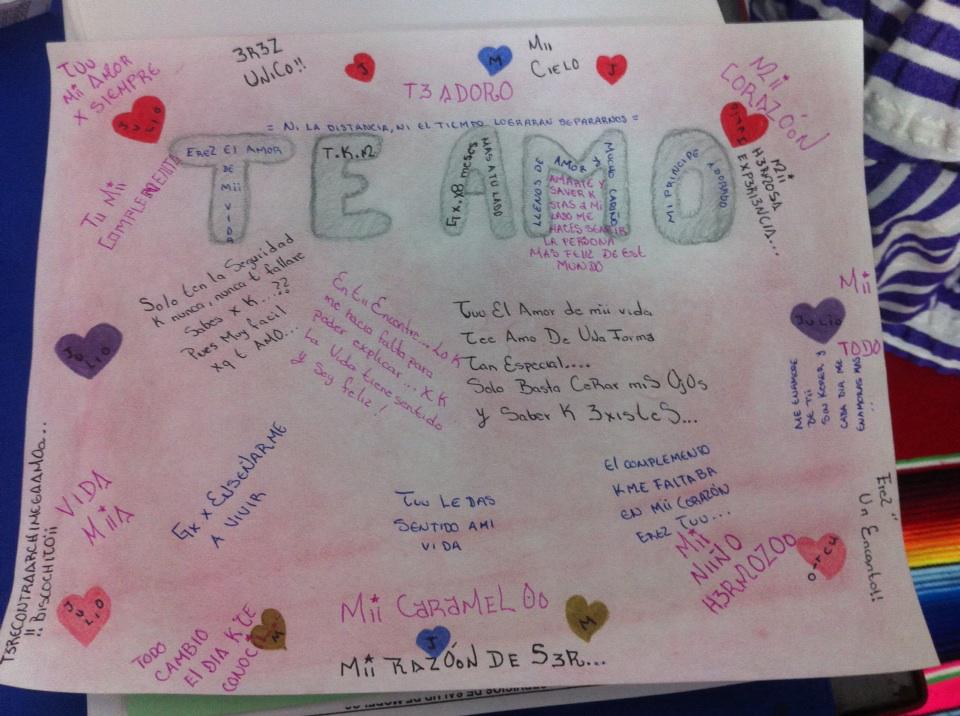 TUU
Mii AMOR
X SIEMPRE
3R3Z
UNiCO!!
J
M
Mii
CiELO
J
T3 ADORO
Mii
CORAZÓON
JULIO
= Ni LA DiSTANCiA, Ni EL TiEMPO LOGRARAN SEPARARNOS =
TE AMO
EREZ El AMOR
DE
Mii
ViDA
T.K.M
Gx. x8 meses
MAS A TU LADO
LLENOS DE
AMOR Y
MUCHO CARiÑO
AMARTE Y
SAVER K
STAS A Mi
LADO ME
HACES SENTiR
LA PERSONA
MAS FELIZ DE ESt
MUNDO
Mi PRiNCiPE
ADORADO
Mii
H3RMOSA
EXP3Ri3NCiA...
TU Mii
COMPLEMENTO
Solo ten la Seguridad
K nunca, nunca t fallare
Sabes x K...??
Pues Muy facil
xq t AMO...
En tii Encontre... LO K
me hacia falta para
poder explicar... X K
La Vida tiene sentido
y Soy feliz!
Tuu El Amor de mii vida
Tee Amo De Una Forma
Tan Especial....
Solo Basta CeRar miS OjOs
y Saber K 3xisteS...
JULIO
Mii
JULIO
TODO
ME ENAMORE
DE Tii
SiN KERER y
CADA DiA ME
ENAMORAS MAS
...
T3RECONTRAARCHiNEGAAMOO...
!! BiSCOCHiTO!!
ViDA
MiiA
Gx x ENSEÑARME
A ViViR
TUU LE DAS
SENTiDO AMi
ViDA
El COMPLEMENTO
K ME FALTABA
EN Mii CORAZÓN
EREZ TUU...
Mii
NiiÑO
H3RMOZOO
Erez
Un Encanto!!
JULIO
TODO
CAMBiO
El DiA K TE
CONOCi
M
Mii CARAMELOo
J
M
Mii RAZÓON DE S3R...